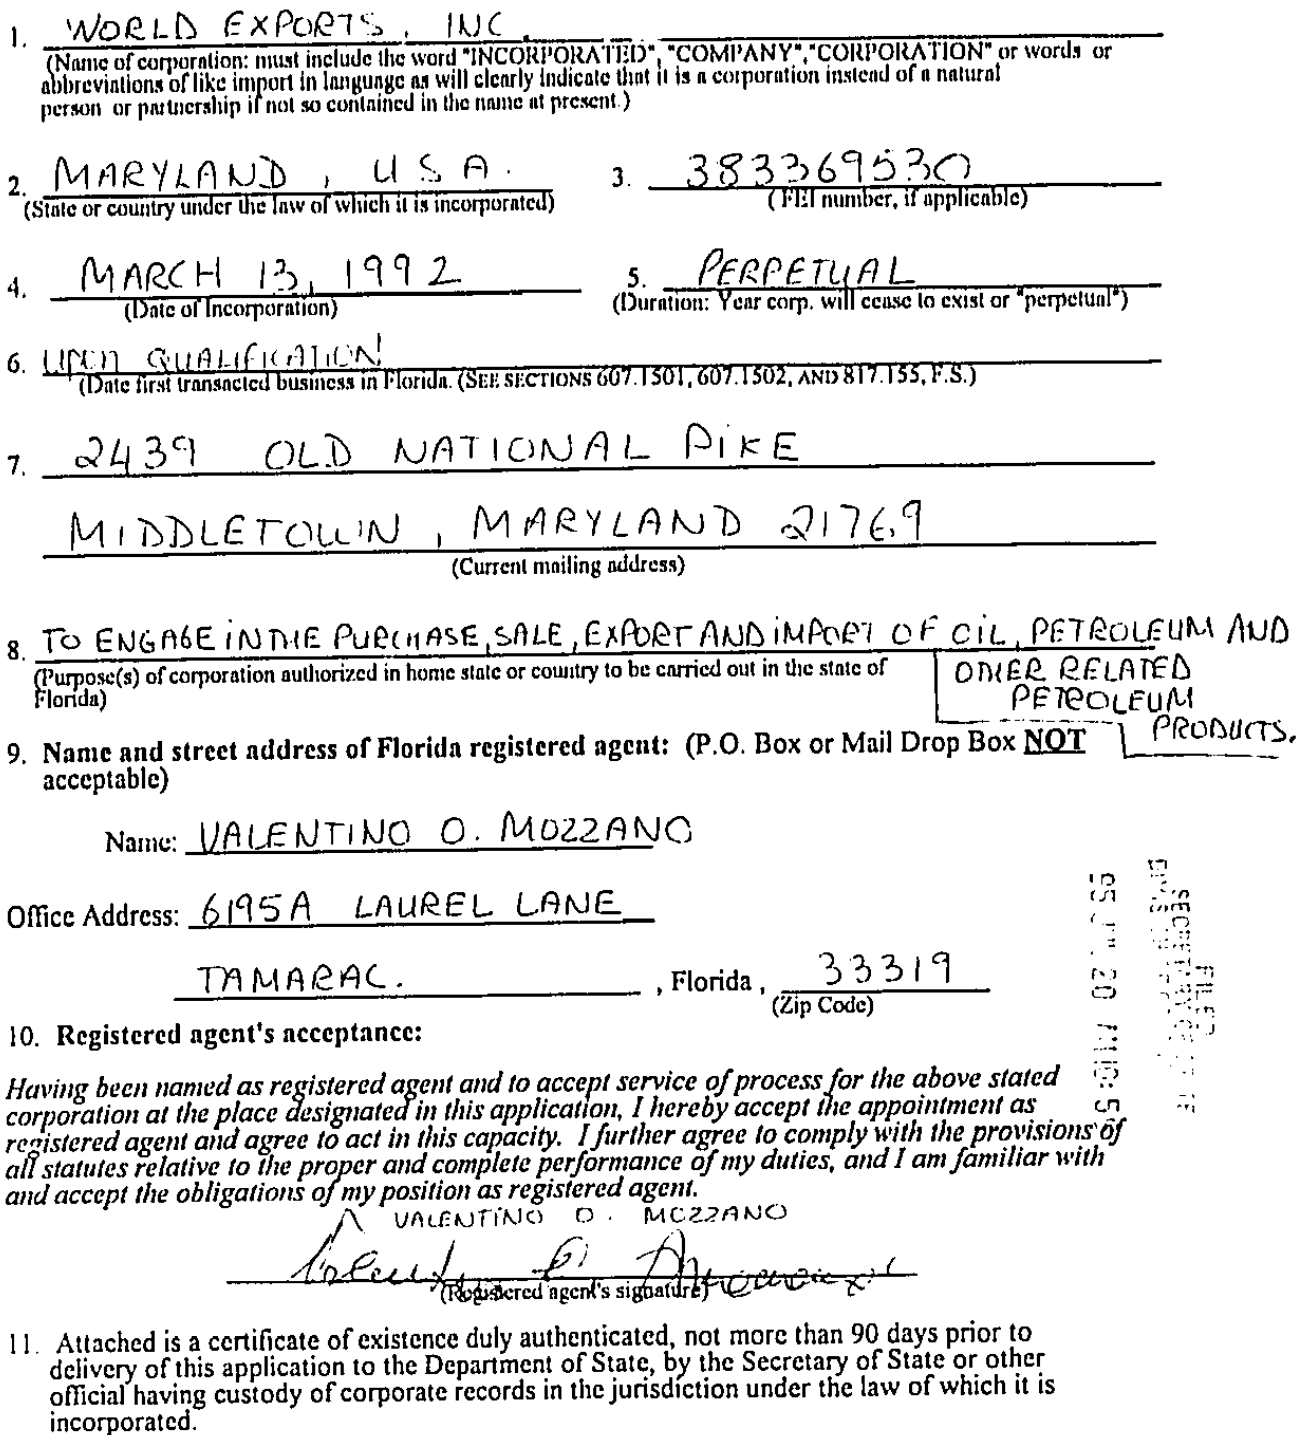 1. WORLD EXPORTS, INC.
(Name of corporation: must include the word "INCORPORATED", "COMPANY", "CORPORATION" or words or
abbreviations of like import in language as will clearly indicate that it is a corporation instead of a natural
person or partnership if not so contained in the name at present.)
2. MARYLAND, USA. 3. 383369530
(State or country under the law of which it is incorporated) (FEI number, if applicable)
4. MARCH 13, 1992 5. PERPETUAL
(Date of Incorporation) (Duration: Year corp. will cease to exist or "perpetual")
6. UPON QUALIFICATION
(Date first transacted business in Florida. (SEE SECTIONS 607.1501, 607.1502, AND 817.155, F.S.)
7. 2439 OLD NATIONAL PIKE
MIDDLETOWN, MARYLAND 21769
(Current mailing address)
8. TO ENGAGE IN THE PURCHASE, SALE, EXPORT AND IMPORT OF OIL, PETROLEUM AND
(Purpose(s) of corporation authorized in home state or country to be carried out in the state of
Florida)
OTHER RELATED
PETROLEUM
PRODUCTS.
9. Name and street address of Florida registered agent: (P.O. Box or Mail Drop Box NOT
acceptable)
Name: VALENTINO O. MOZZANO
Office Address: 6195A LAUREL LANE
TAMARAC. , Florida, 33319
(Zip Code)
FILED
SECRETARY OF STATE
95 20
10. Registered agent's acceptance:
Having been named as registered agent and to accept service of process for the above stated
corporation at the place designated in this application, I hereby accept the appointment as
registered agent and agree to act in this capacity. I further agree to comply with the provisions of
all statutes relative to the proper and complete performance of my duties, and I am familiar with
and accept the obligations of my position as registered agent.
VALENTINO O. MOZZANO
(Registered agent's signature)
11. Attached is a certificate of existence duly authenticated, not more than 90 days prior to
delivery of this application to the Department of State, by the Secretary of State or other
official having custody of corporate records in the jurisdiction under the law of which it is
incorporated.